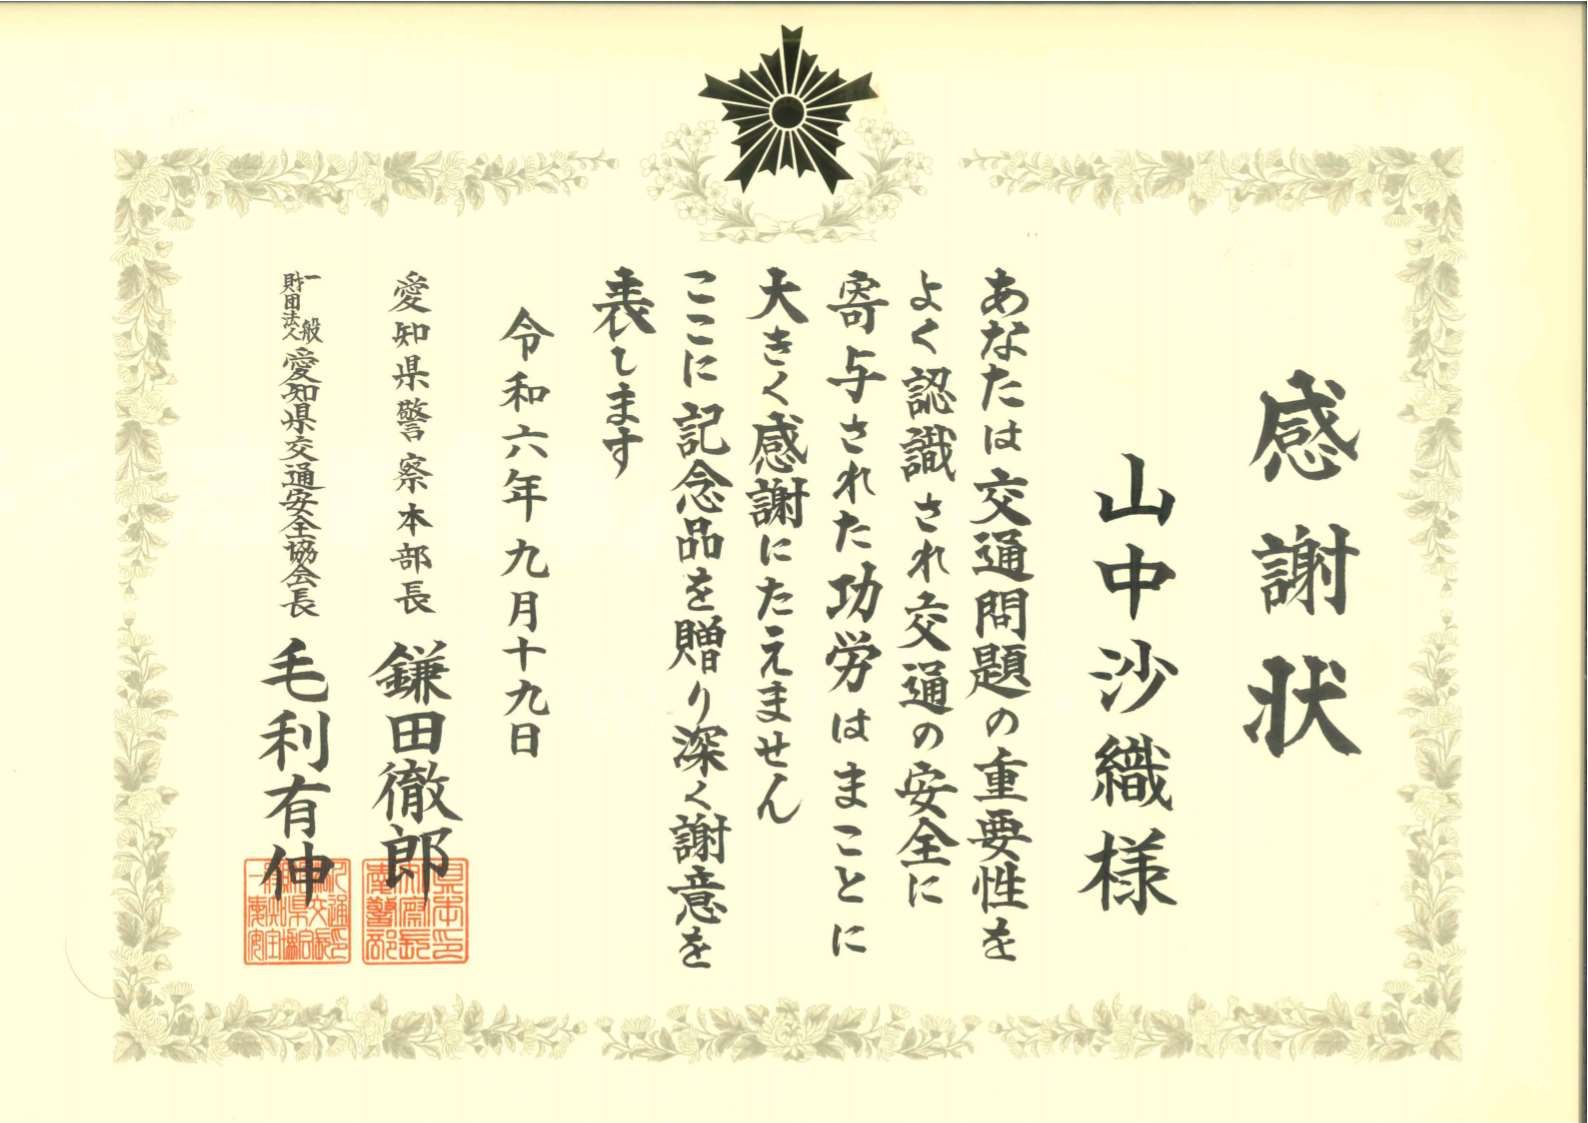 感謝状
山中沙織様
あなたは交通問題の重要性を
よく認識され交通の安全に
寄与された功労はまことに
大きく感謝にたえません
ここに記念品を贈り深く謝意を
表します
令和六年九月十九日
愛知県警察本部長 鎌田徹郎
一般財団法人愛知県交通安全協会長 毛利有伸